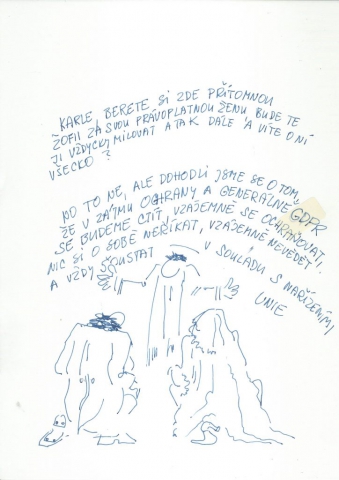 KARLE, BERETE SI ZDE PŘÍTOMNOU
ŽOFII ZA SVOU PRÁVOPLATNOU ŽENU BUDETE
JI VŽDYCKY MILOVAT A TAK DÁLE A VÍTE O NÍ
VŠECKO?
NO TO NE, ALE DOHODLI JSME SE O TOM,
ŽE V ZÁJMU OCHRANY A GENERÁLNĚ GDPR
SE BUDEME CTÍT, VZÁJEMNĚ SE OCHRAŇOVAT,
NIC SI O SOBĚ NEŘÍKAT, VZÁJEMNĚ NEVĚDĚT
A VŽDY ŠOUSTAT V SOULADU S NAŘÍZENÍMI
UNIE